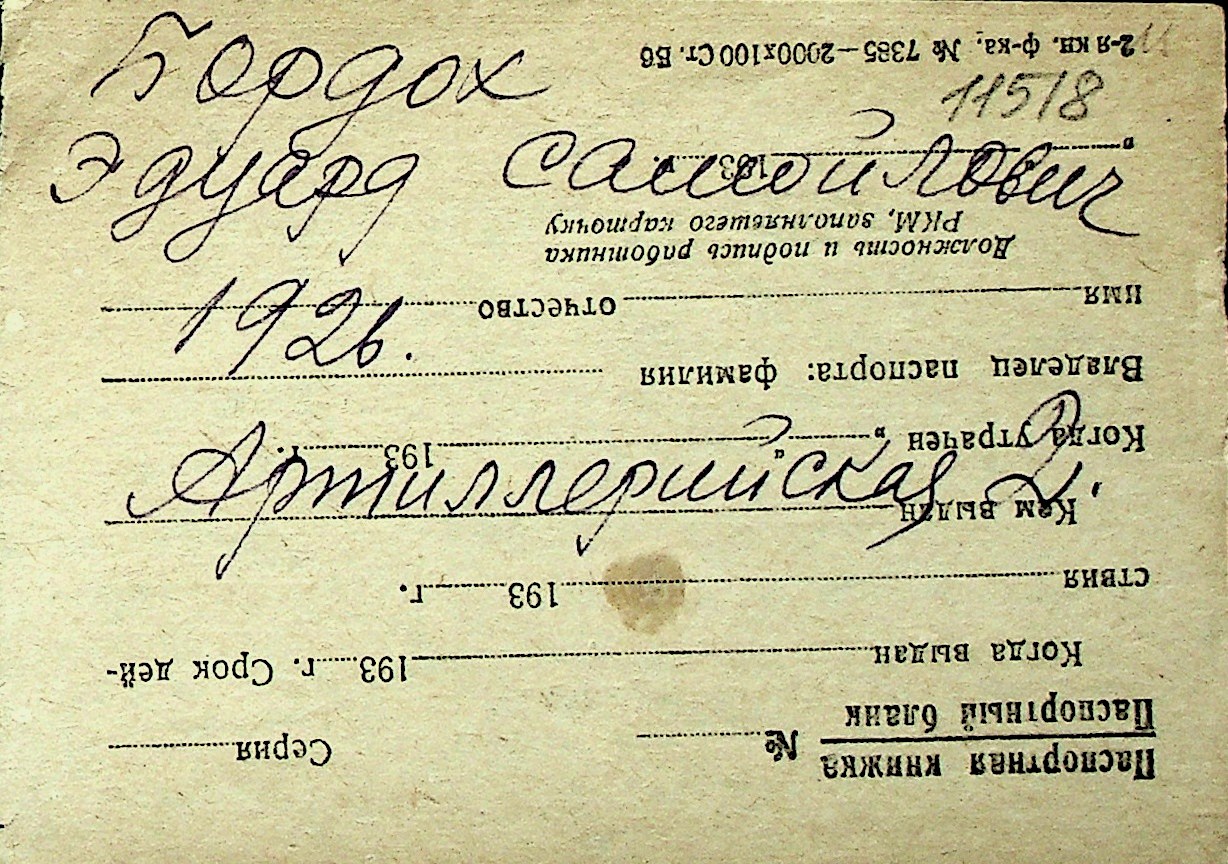 11518
Бордох
Эдуард Самойлович
1926.
Артиллерийская 2.
Паспортная книжка № Серия
Паспортный бланк
Когда выдан 193 г. Срок дей-
ствия 193 г.
Кем выдан
Когда утрачен „ “ 193 г.
Владелец паспорта: фамилия
имя отчество
Должность и подпись работника
РКМ, заполнявшего карточку
„ “ 193 г.
2-я кн. ф-ка, № 7385—2000х100 Ст. Вб